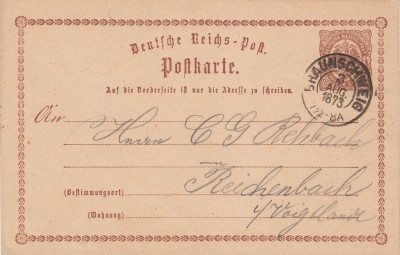 Deutsche Reichs-Post.
Postkarte.
Auf die Vorderseite ist nur die Adresse zu schreiben.
BRAUNSCHWEIG
2
AUG.
1873
An
Herrn C G
Reichenbach
(Bestimmungsort)
i/Voigtlande
(Wohnung)